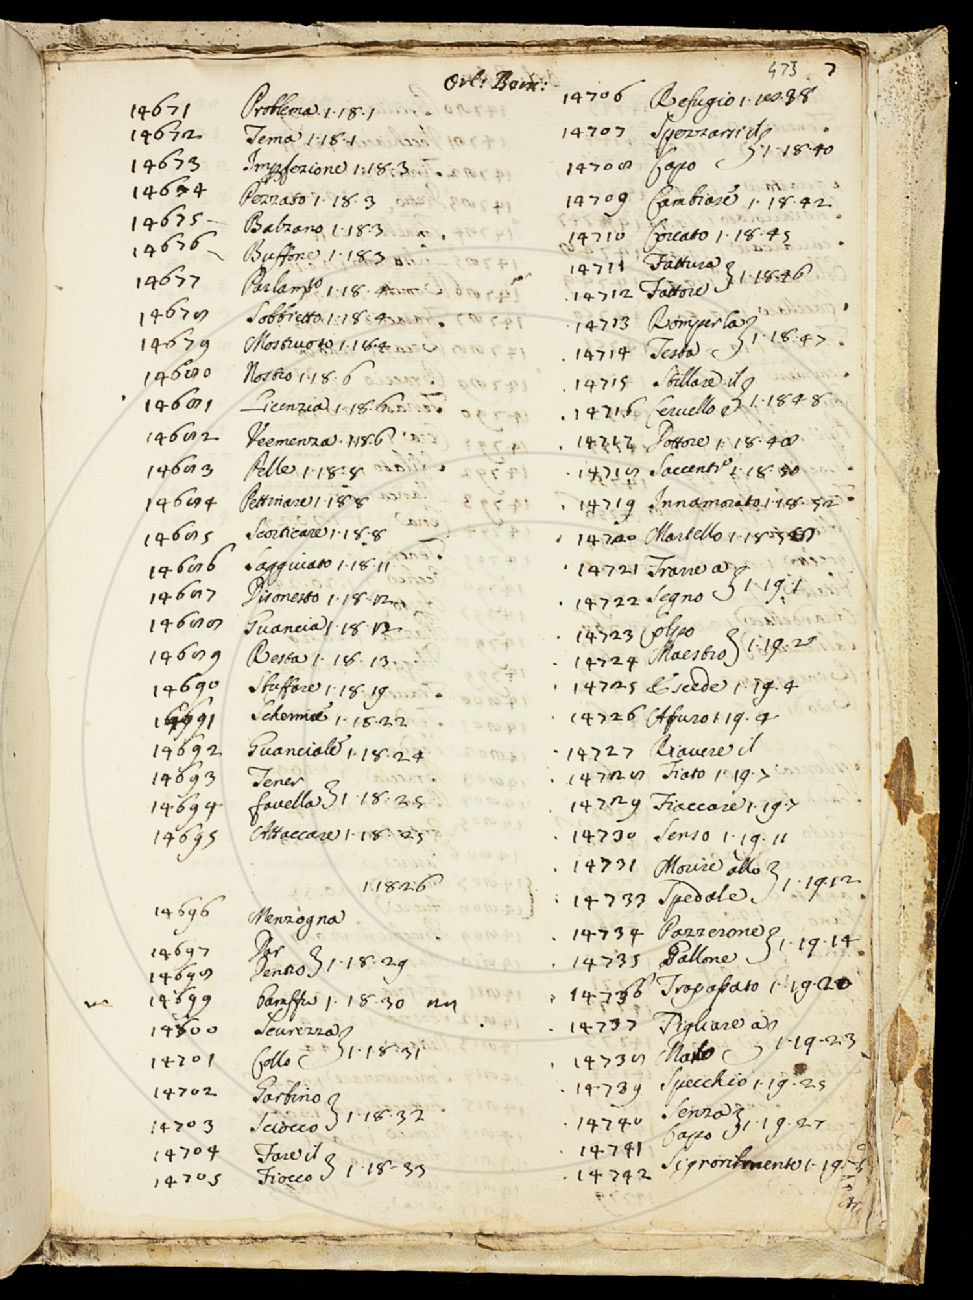 473 7
Orl: Born:
14671 Problema 1·18·1
14672 Tema 1·18·1
14673 Imperfezione 1·18·3
14674 Pezzato 1·18·3
14675 Balzano 1·18·3
14676 Buffone 1·18·3
14677 1·18·4
14678 Sobbietto 1·18·4
14679 Mostruoso 1·18·4
14680 Nostro 1·18·6
14681 Licenzia 1·18·6
14682 Veemenza 1·18·6
14683 Pelle 1·18·8
14684 Pettinare 1·18·8
14685 Scorticare 1·18·8
14686 Saggiuato 1·18·11
14687 Disonesto 1·18·12
14688 Guancia 1·18·12
14689 Resta 1·18·13
14690 Stuffare 1·18·19
14691 1·18·22
14692 Guanciale 1·18·24
14693 Tener
14694 favella 1·18·25
14695 Attaccare 1·18·25
1·18·26
14696 Menzogna
14697 Dar
14698 Dentro 1·18·29
14699 1·18·30
14800 Scurezza
14701 Collo 1·18·31
14702 Garbino
14703 Sciocco 1·18·32
14704 Fare il
14705 Fiocco 1·18·33
14706 Refugio 1·18·38
14707 il
14708 Capo 1·18·40
14709 Cambiare 1·18·42
14710 Corcato 1·18·45
14711 Fattura
14712 Fattore 1·18·46
14713 Romper la
14714 Testa 1·18·47
14715 Stillare il
14716 Cervello 1·18·48
14717 Pottore 1·18·48
14718 1·18·50
14719 Innamorato 1·18·52
14720 Martello 1·18
14721 Trarre a
14722 Segno 1·19·1
14723 Colpo
14724 Maestro 1·19·2
14725 Escede 1·19·4
14726 1·19·4
14727 Riavere il
14728 Fiato 1·19·7
14729 Fiaccare 1·19·7
14730 Senso 1·19·11
14731 Morire allo
14733 Spedale 1·19·12
14734 Pazzerone
14735 Pallone 1·19·14
14736 Trapassato 1·19·20
14737 Pigliare a
14738 Nolo 1·19·23
14739 Specchio 1·19·25
14740 Senza
14741 Capo 1·19·27
14742 1·19